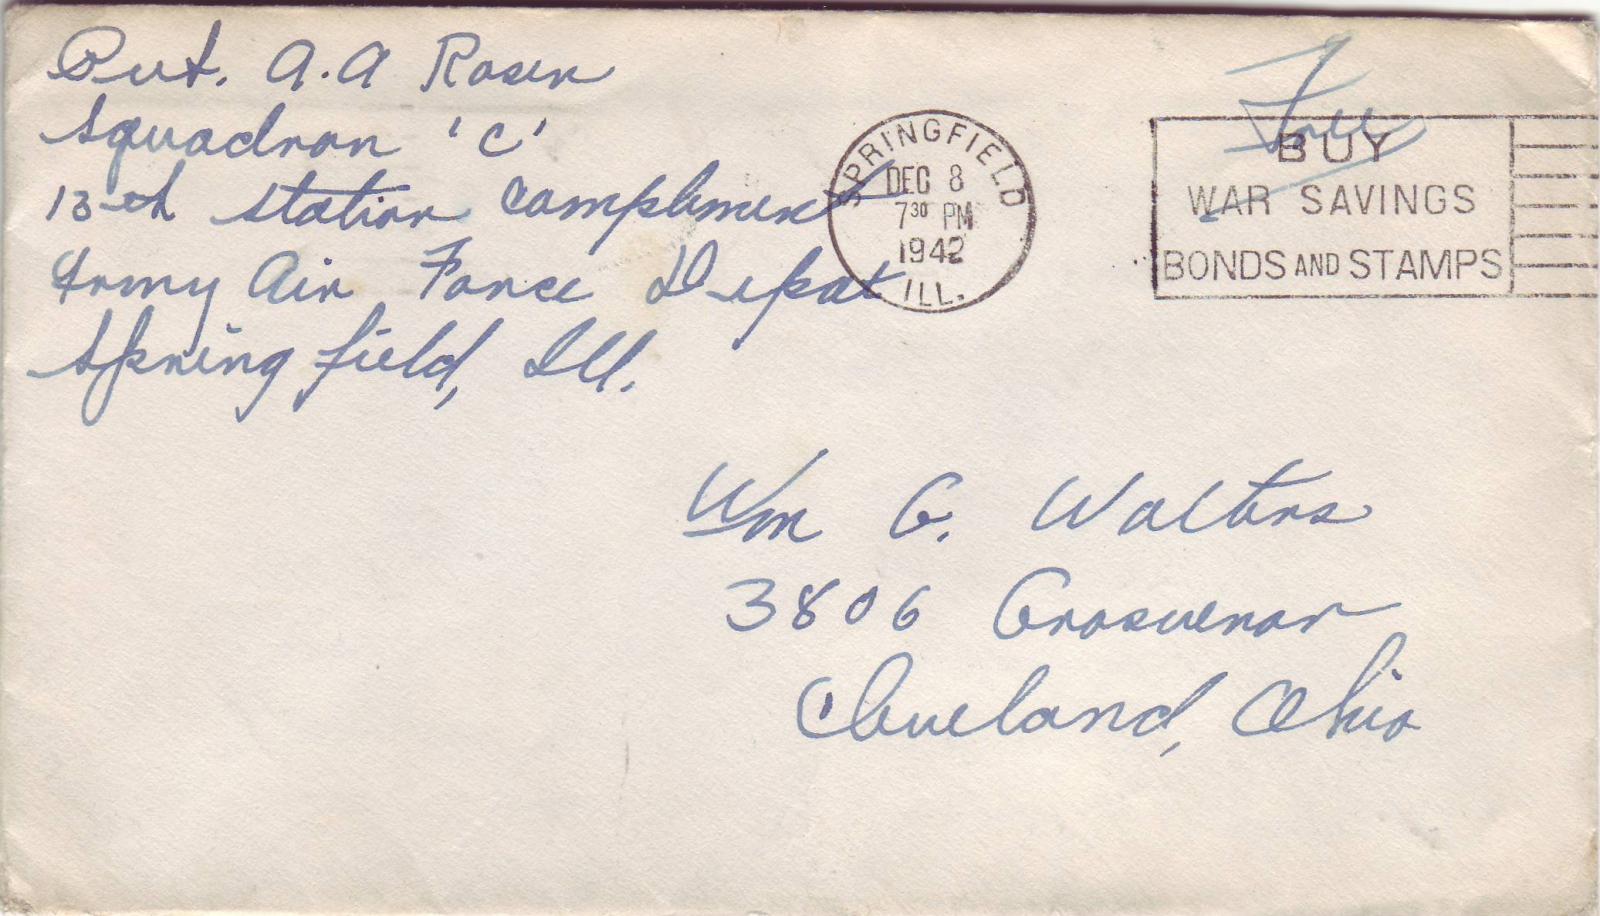 Pvt. A.A Rosen
Squadron 'C'
13th Station Compliment
Army Air Force Depot
Springfield, Ill.
SPRINGFIELD
DEC 8
7 30 PM
1942
ILL.
Free
BUY
WAR SAVINGS
BONDS AND STAMPS
Wm G. Walters
3806 Grosvenor
Cleveland, Ohio